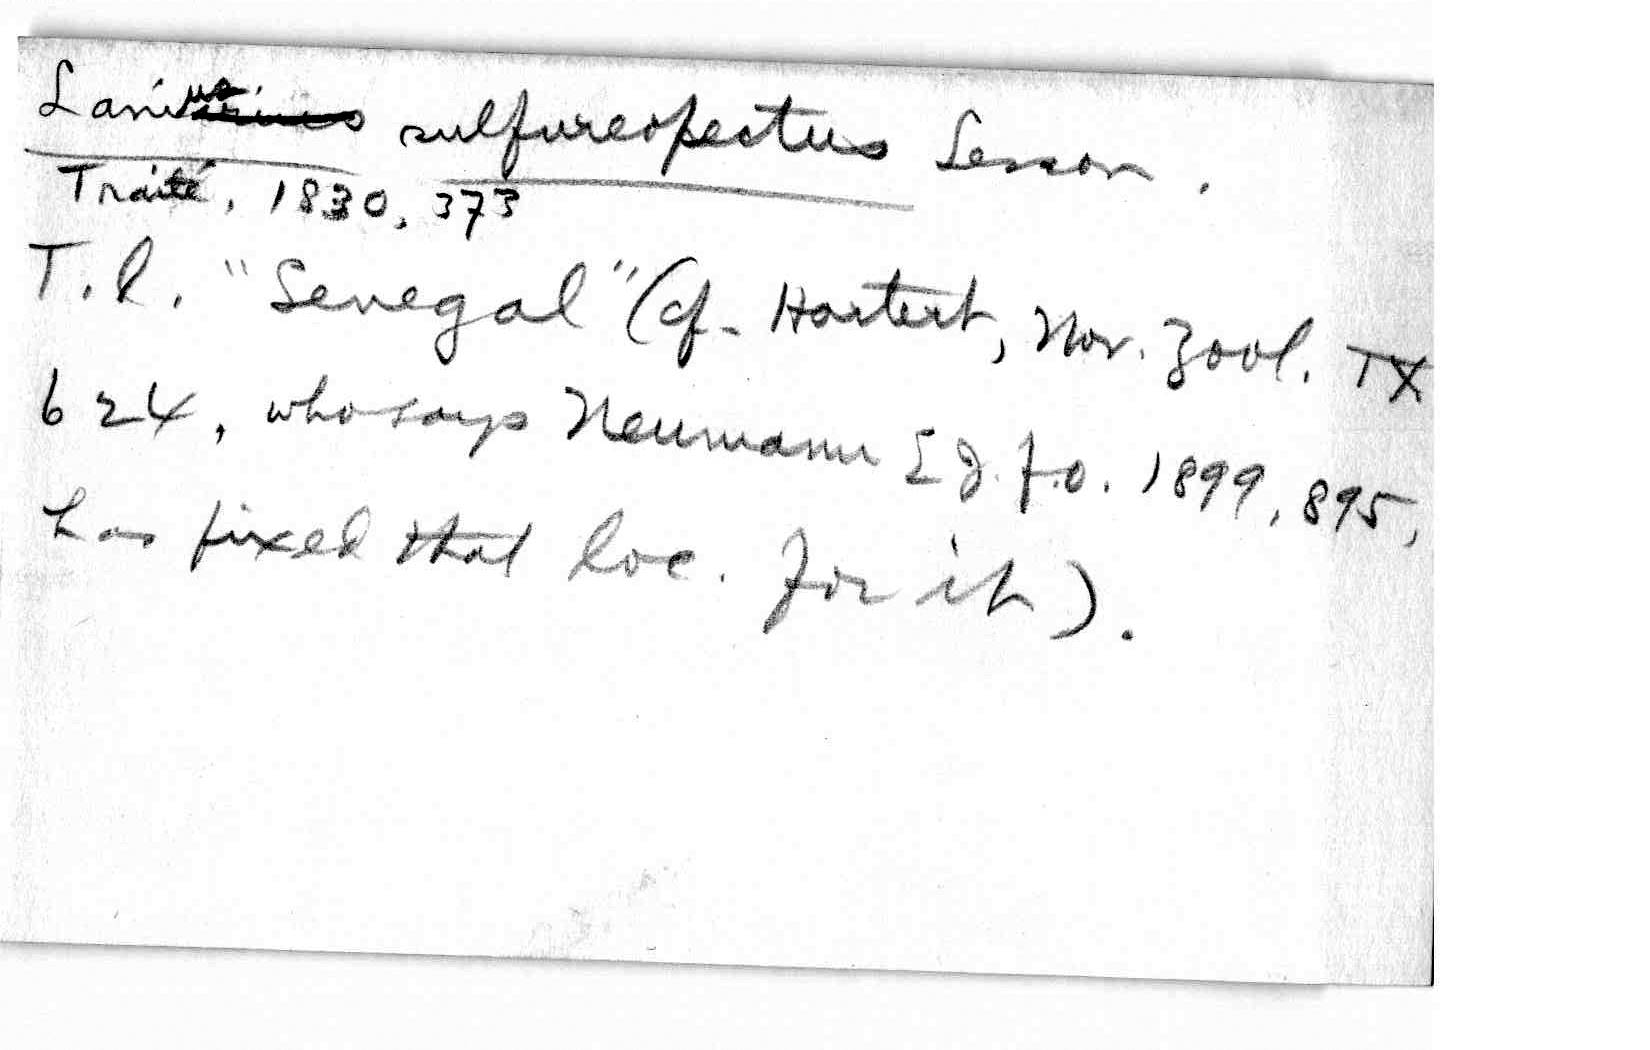 Lanius sulfureopectus Lesson.
Traité, 1830, 373
T.l. "Senegal" (cf. Hartert, Nov. Zool. IX
624, who says Neumann [J.f.O. 1899, 895,
has fixed that loc. for it).